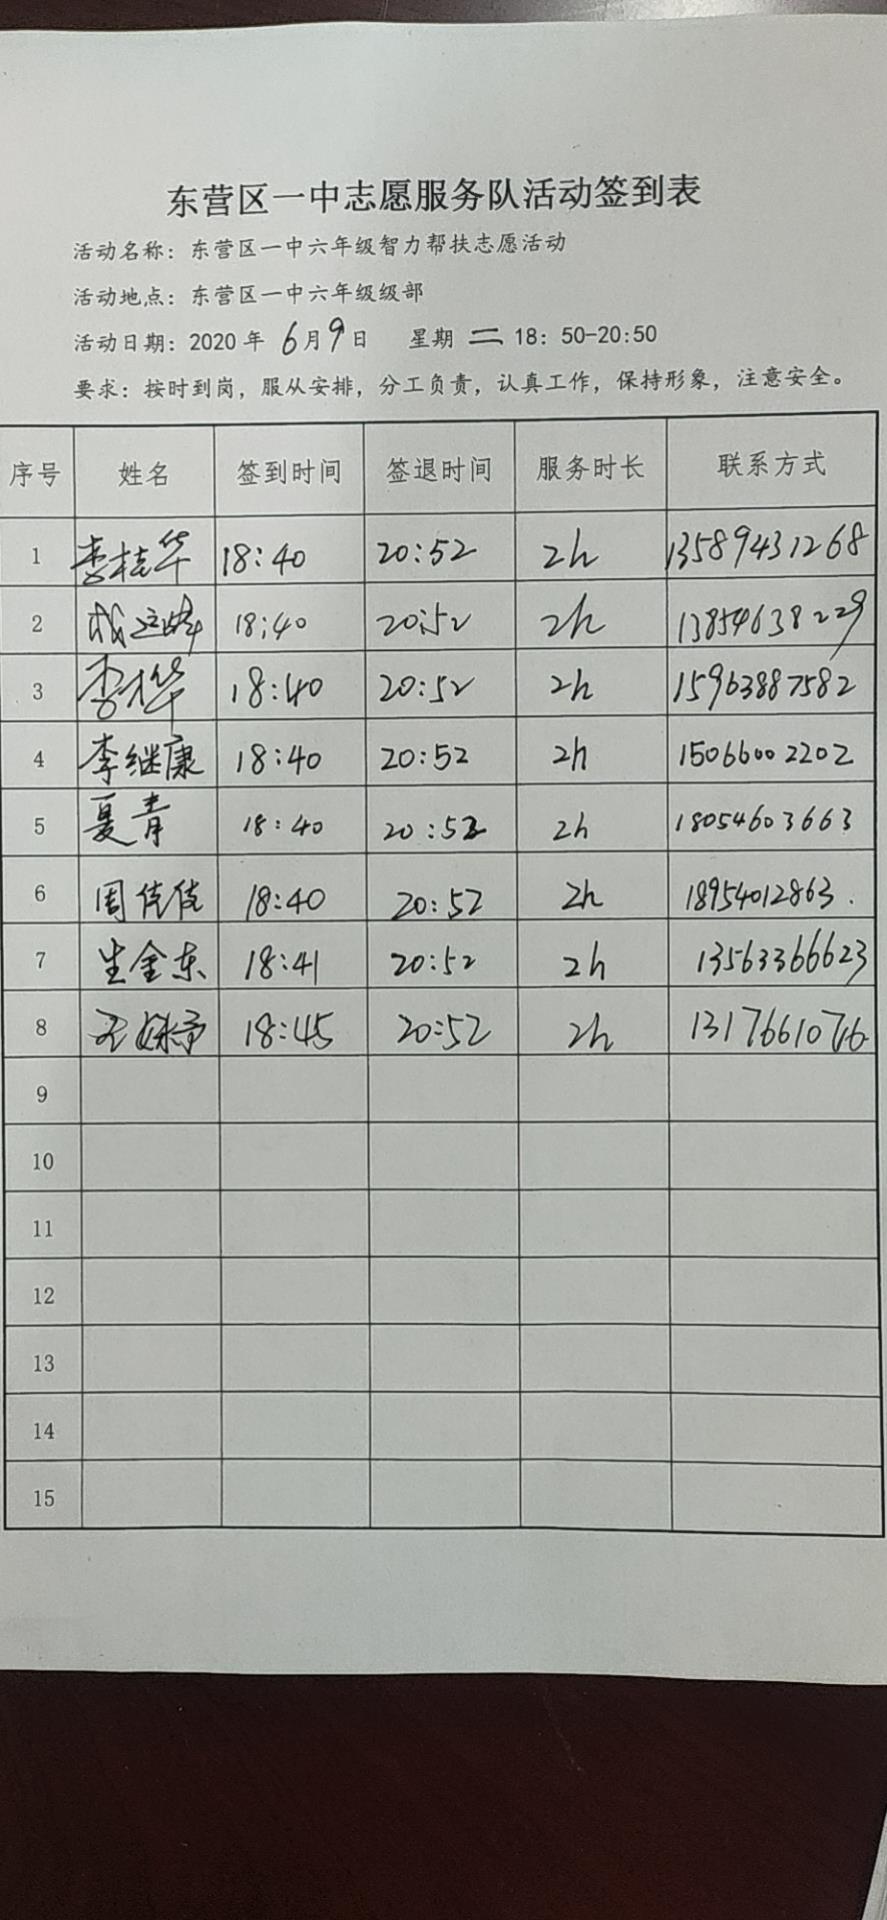 东营区一中志愿服务队活动签到表
活动名称：东营区一中六年级智力帮扶志愿活动
活动地点：东营区一中六年级级部
活动日期：2020 年 6月9日 星期 二 18：50-20:50
要求：按时到岗，服从安排，分工负责，认真工作，保持形象，注意安全。
序号 姓名 签到时间 签退时间 服务时长 联系方式
1 李桂华 18:40 20:52 2h 13589431268
2 18:40 20:52 2h 13854638229
3 李桦 18:40 20:52 2h 15963887582
4 李继康 18:40 20:52 2h 15066002202
5 夏青 18:40 20:52 2h 18054603663
6 周佳佳 18:40 20:52 2h 18954012863.
7 生金东 18:41 20:52 2h 13563366623
8 18:45 20:52 2h
9
10
11
12
13
14
15